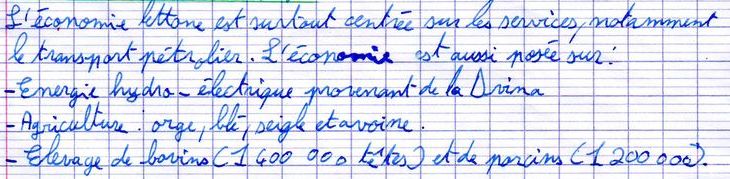 L'économie lettone est surtout centrée sur les services, notamment
le transport pétrolier. L'économie est aussi posée sur :
- Energie hydro-électrique provenant de la Dvina
- Agriculture : orge, blé, seigle et avoine.
- Elevage de bovins (1 400 000 têtes) et de porcins (1 200 000).